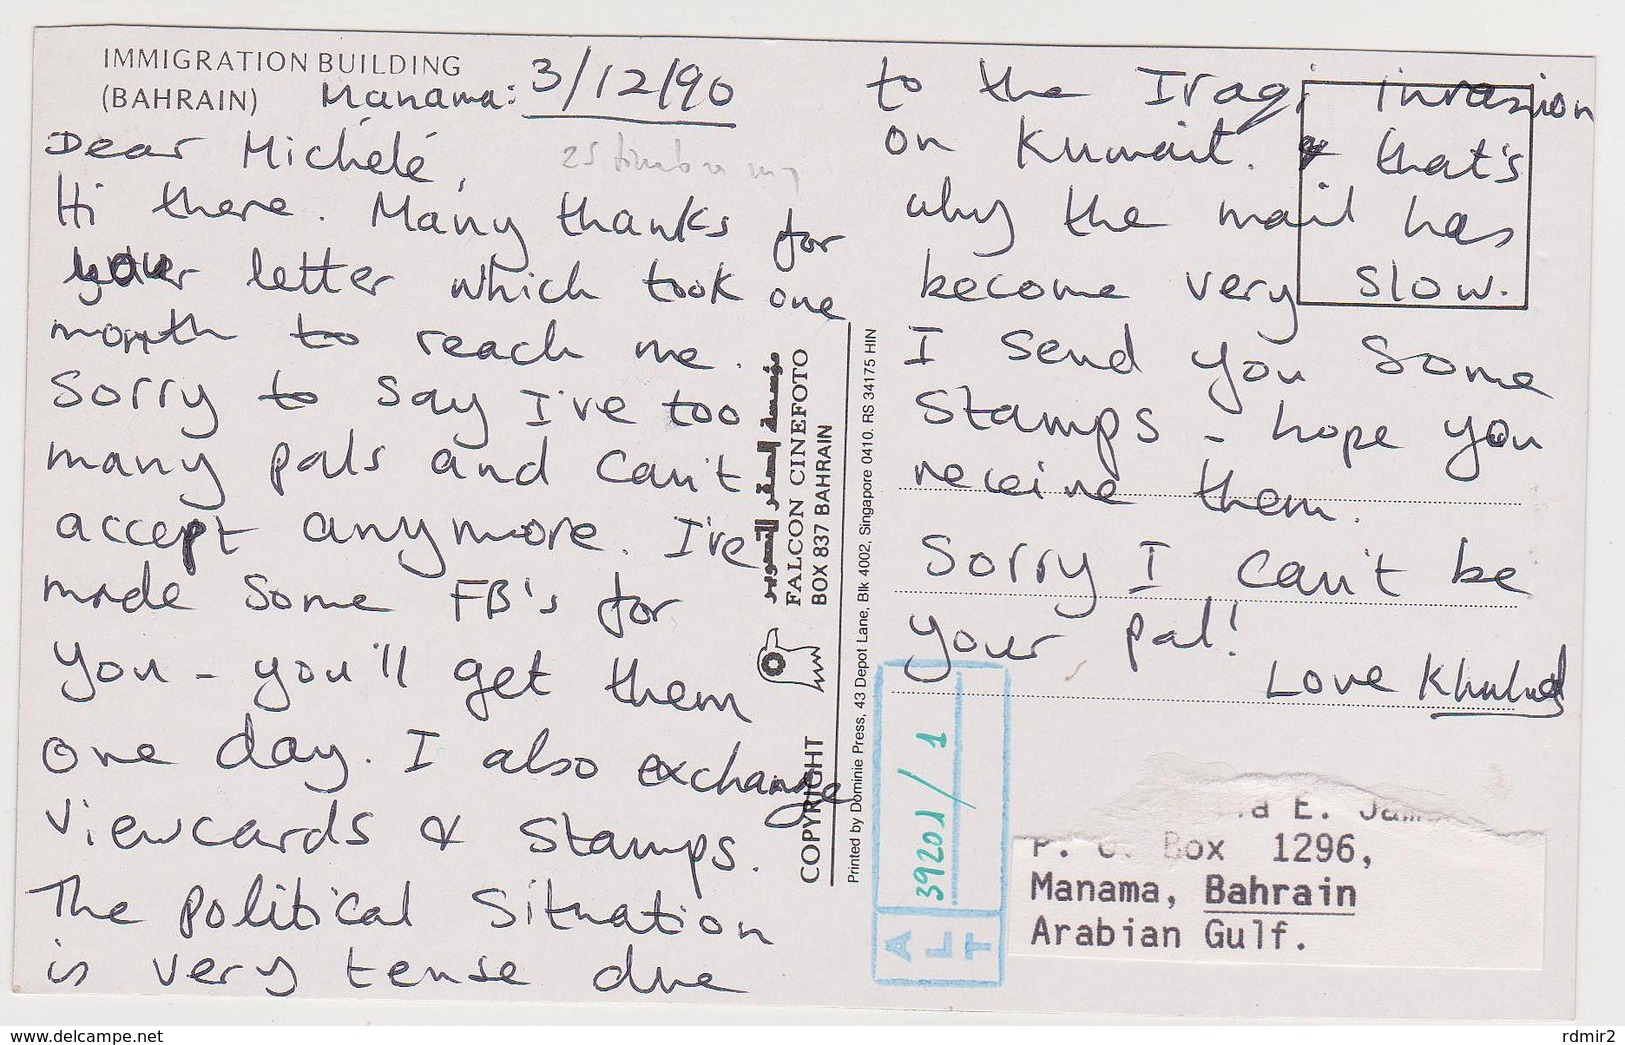 IMMIGRATION BUILDING
(BAHRAIN) Manama: 3/12/90
Dear Michélé,
Hi there. Many thanks for
your letter which took one
month to reach me.
Sorry to say I've too
many pals and can't
accept anymore. I've
made some FB's for
you - you'll get them
one day. I also exchange
viewcards & stamps.
The political situation
is very tense due
to the Iraqi invasion
on Kuwait. that's
why the mail has
become very slow.
I send you some
stamps - hope you
receive them.
Sorry I can't be
your pal!
Love Khulud
مؤسسة الصقر للتصوير
FALCON CINEFOTO
BOX 837 BAHRAIN
COPYRIGHT
Printed by Dominie Press, 43 Depot Lane, Blk 4002, Singapore 0410. RS 34175 HIN
39201/1
ALT
E.
P. O. Box 1296,
Manama, Bahrain
Arabian Gulf.
www.delcampe.net
rdmir2